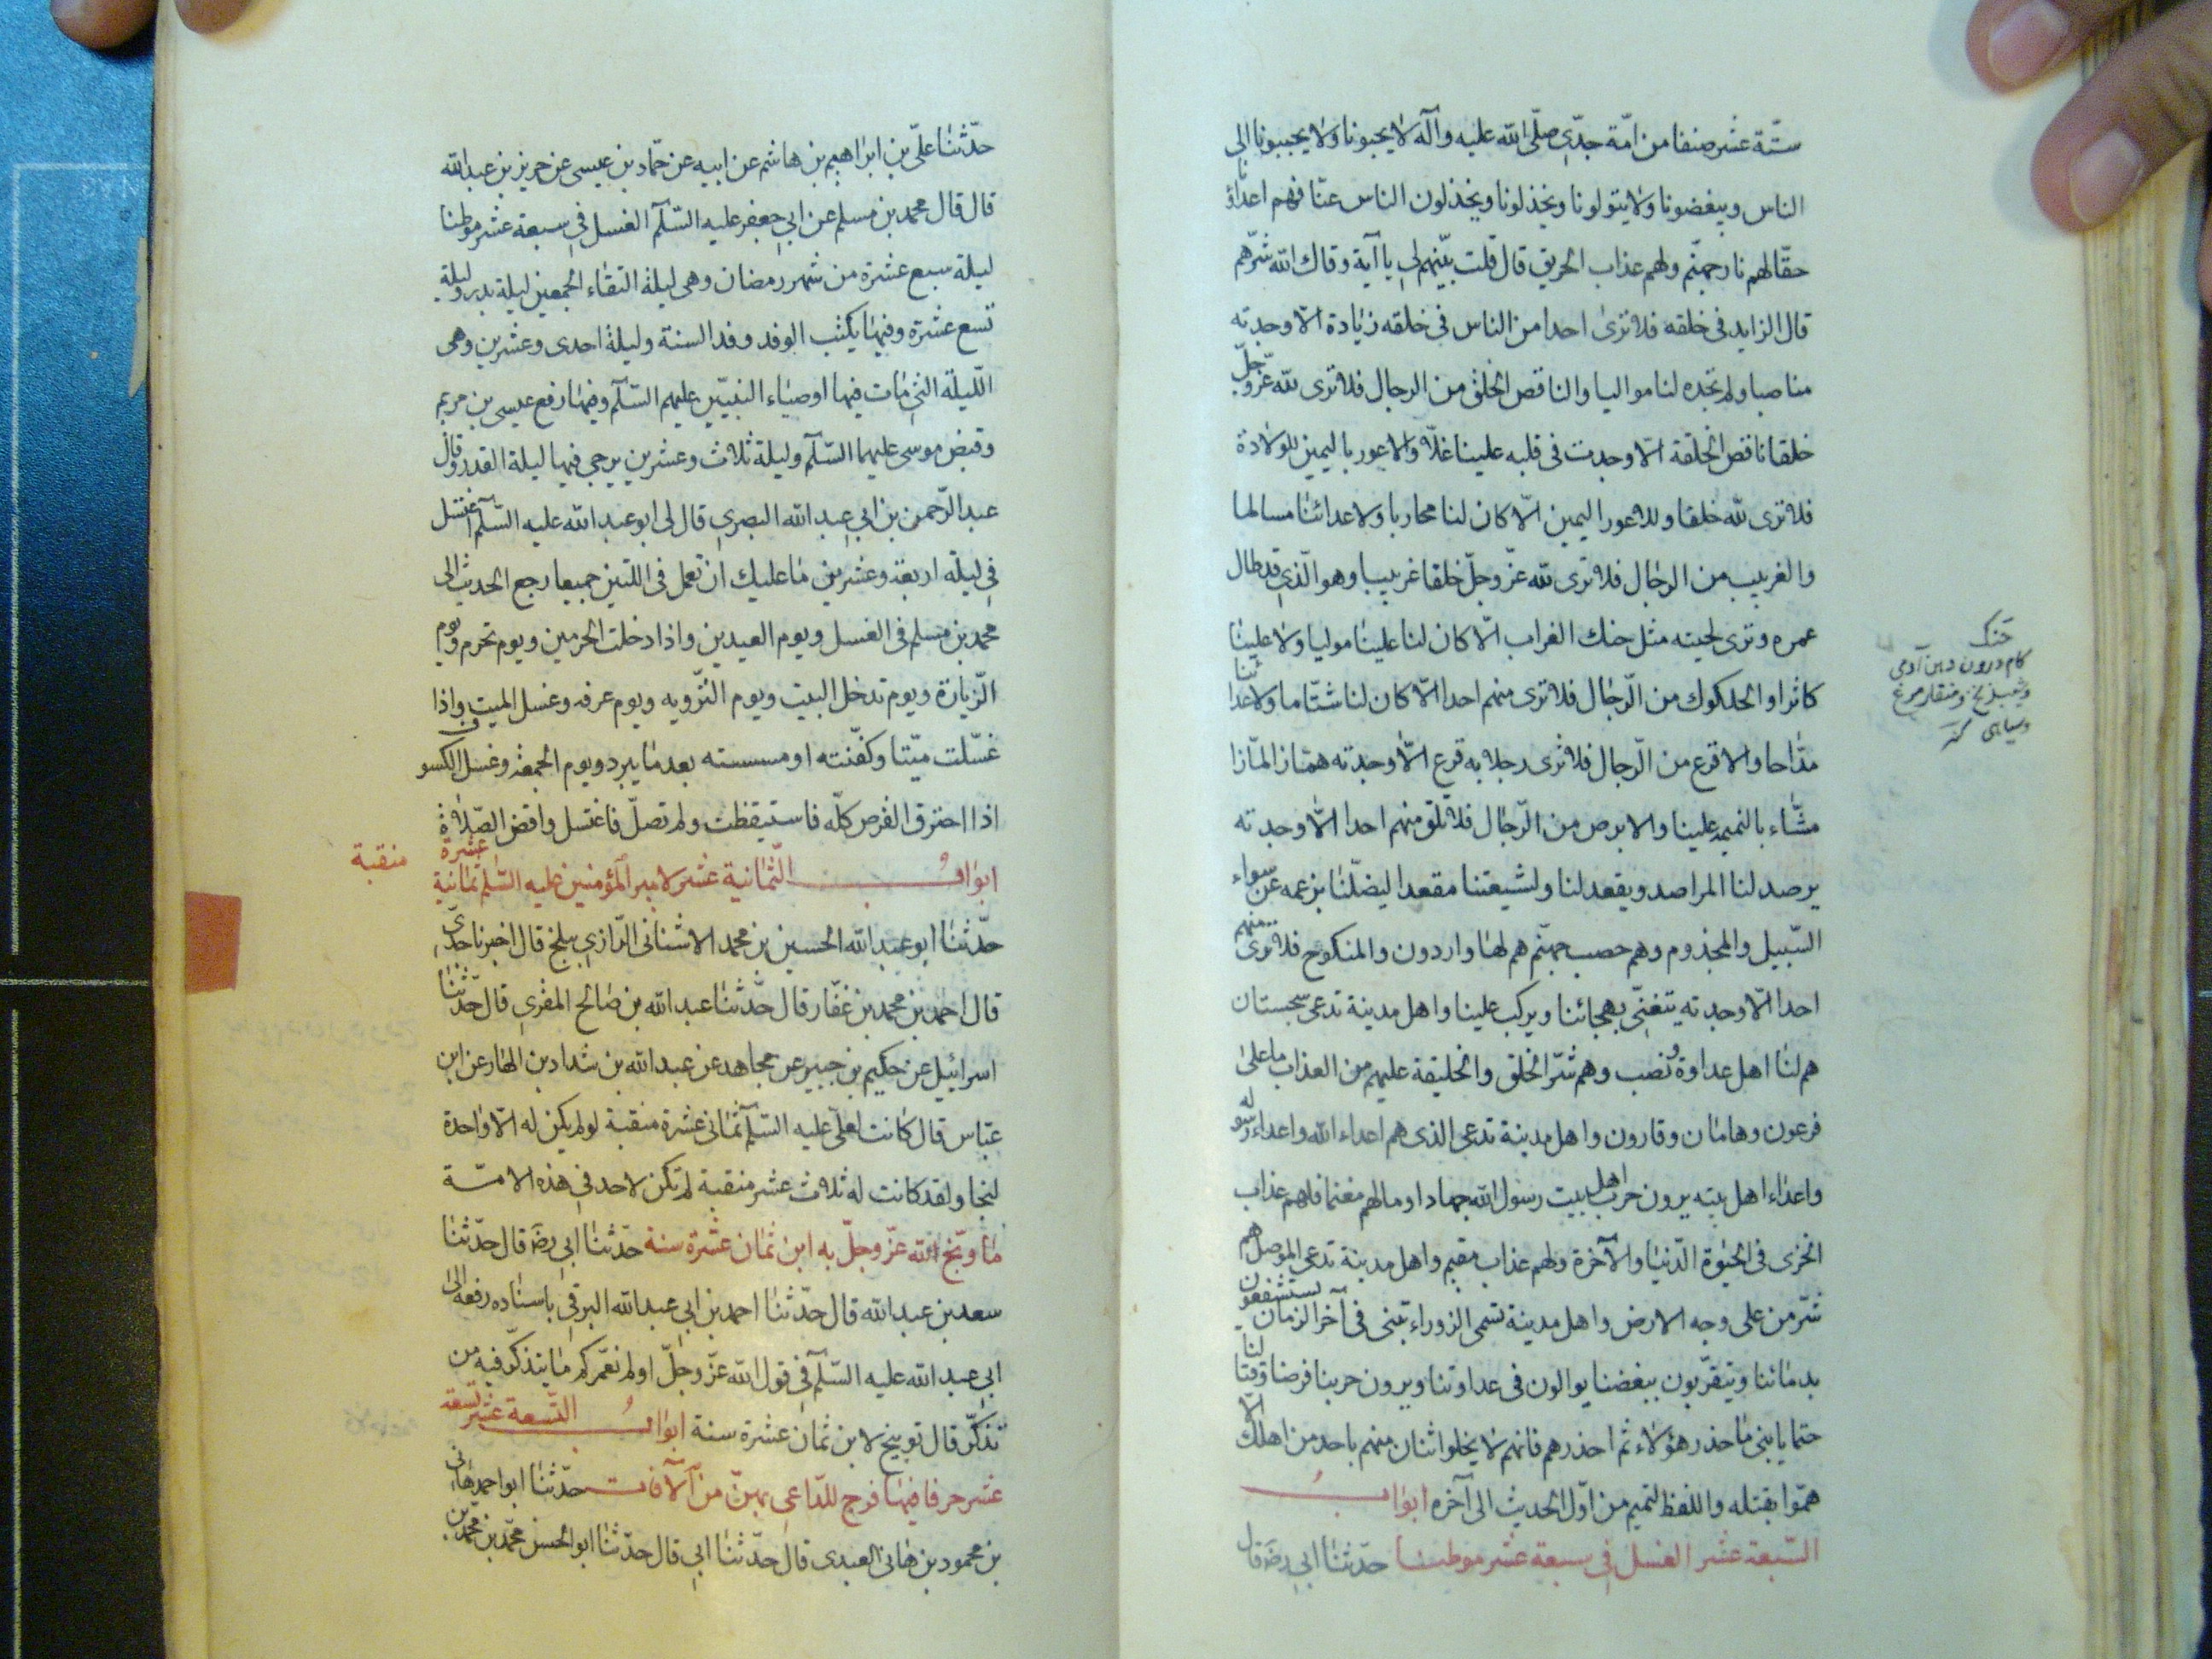 ستّة عشر صنفا من امّة جدّي صلّى الله عليه وآله لا يحبونا ولا يحببونا الى
الناس ويبغضونا ولا يتولونا ويخذلونا ويخذلون الناس عنّا فهم اعداؤنا
حقّا لهم نار جهنّم ولهم عذاب الحريق قال قلت بيّنهم لي يا آية وقاك الله شرّهم
قال الزايد في خلقه فلا ترى احدا من الناس في خلقه زيادة الّا وجدته
مناصبا ولم تجده لنا مواليا والناقص الخلق من الرجال فلا ترى لله عزّ وجلّ
خلقا ناقص الخلقة الّا وجدت في قلبه علينا غلّا والاعور باليمين للولادة
فلا ترى لله خلقا وللاعور اليمين الّا كان لنا محاربا ولاعدائنا مسالما
والغربيب من الرجال فلا ترى لله عزّ وجلّ خلقا غربيبا وهو الّذي قد طال
عمره وترى لحيته مثل حنك الغراب الّا كان لنا علينا موليا ولا علينا
كاثرا والحلكوك من الرّجال فلا ترى منهم احدا الّا كان لنا شتّاما ولاعدائنا
مدّاحا والاقرع من الرّجال فلا ترى رجلا به قرع الّا وجدته همّازا لمّازا
مشّاء بالنميمة علينا والابرص من الرّجال فلا تلق منهم احدا الّا وجدته
يرصد لنا المراصد ويقعد لنا ولشيعتنا مقعدا ليضلّنا بزعمه عن سواء
السّبيل والمجذوم وهم حصب جهنّم هم لها واردون والمنكوح فلا ترى منهم
احدا الّا وجدته يتغنّى بهجائنا ويركب علينا واهل مدينة تدعى سجستان
هم لنا اهل عداوة ونصب وهم شرّ الخلق والخليقة عليهم من العذاب ما على
فرعون وهامان وقارون واهل مدينة تدعى الذى هم اعداء الله واعداء رسوله
واعداء اهل بيته يرون حرب اهل بيت رسول الله جهادا ومالهم مغنما فلهم عذاب
الخزى في الحيوة الدّنيا والآخرة ولهم عذاب مقيم واهل مدينة تدعى الموصل هم
شرّ من على وجه الارض واهل مدينة تسمى الزوراء تبنى في آخر الزمان يستشفعون
بدمائنا ويتقرّبون ببغضنا يوالون في عداوتنا ويرون حربنا فرضا وقتالنا
حتما يا بنى ما حذر هؤلاء ثم احذرهم فانهم لا يخلوا اثنان منهم باحد من اهلك الّا
همّوا بقتله واللفظ لتميم من اوّل الحديث الى آخره ابواب
السّبعة عشر الغسل في سبعة عشر موطنا حدّثنا ابي رضه قال
حنك
كام درون دهن آدمى
وشيب زنخ ومنقار مرغ
وسياهى
حدّثنا علّي بن ابراهيم بن هاشم عن ابيه عن حمّاد بن عيسى عن حريز بن عبد الله
قال قال محمد بن مسلم عن ابي جعفر عليه السّلم الغسل في سبعة عشر موطنا
ليلة سبع عشرة من شهر رمضان وهى ليلة التقاء الجمعين ليلة بدر وليلة
تسع عشرة وفيها يكتب الوفد وفد السنة وليلة احدى وعشرين وهى
اللّيلة التي مات فيها اوصياء النبيّين عليهم السّلم وفيها رفع عيسى بن مريم
وقبض موسى عليهما السّلم وليلة ثلاث وعشرين يرجى فيها ليلة القدر وقال
عبد الرّحمن بن ابي عبد الله البصري قال لى ابو عبد الله عليه السّلم اغتسل
في ليلة اربعة وعشرين ما عليك ان تعمل في اللتين جميعا رجع الحديث الى
محمد بن مسلم في الغسل ويوم العيدين واذا دخلت الحرمين ويوم تحرم ويوم
الزّيارة ويوم تدخل البيت ويوم التّرويه ويوم عرفه وغسل الميت واذا
غسّلت ميّتا وكفّنته او مسسته بعد ما يبرد ويوم الجمعة وغسل الكسوف
اذا احترق القرص كلّه فاستيقظت ولم تصلّ فاغتسل واقض الصّلاة
ابواب الثّمانية عشر لامير المؤمنين عليه السّلم ثمانية عشرة
منقبة
حدّثنا ابو عبد الله الحسين بن محمد الاشنانى الرّازي ببلخ قال اخبرنا جدّي
قال احمد بن محمد بن غفّار قال حدّثنا عبد الله بن صالح المقري قال حدّثنا
اسرائيل عن حكيم بن جبير عن مجاهد عن عبد الله بن شداد بن الهاد عن ابن
عبّاس قال كانت لعلّي عليه السّلم ثماني عشرة منقبة لو لم يكن له الّا واحدة
لنجا ولقد كانت له ثلاث عشر منقبة لم تكن لاحد في هذه الامّة
ما وبّخ الله عزّ وجلّ به ابن ثمان عشرة سنة حدّثنا ابي رضه قال حدّثنا
سعد بن عبد الله قال حدّثنا احمد بن ابي عبد الله البرقي باسناده رفعه الى
ابي عبد الله عليه السّلم في قول الله عزّ وجلّ اولم نعمّركم ما يتذكّر فيه من
تذكّر قال توبيخ لابن ثمان عشرة سنة ابواب التّسعة عشر تسعة
عشر حرفا فيها فرج للدّاعي بهنّ من الآفات حدّثنا ابو احمد هانى
بن محمود بن هانى العبدى قال حدّثنا ابي قال حدّثنا ابو الحسن محمّد بن محمّد بن